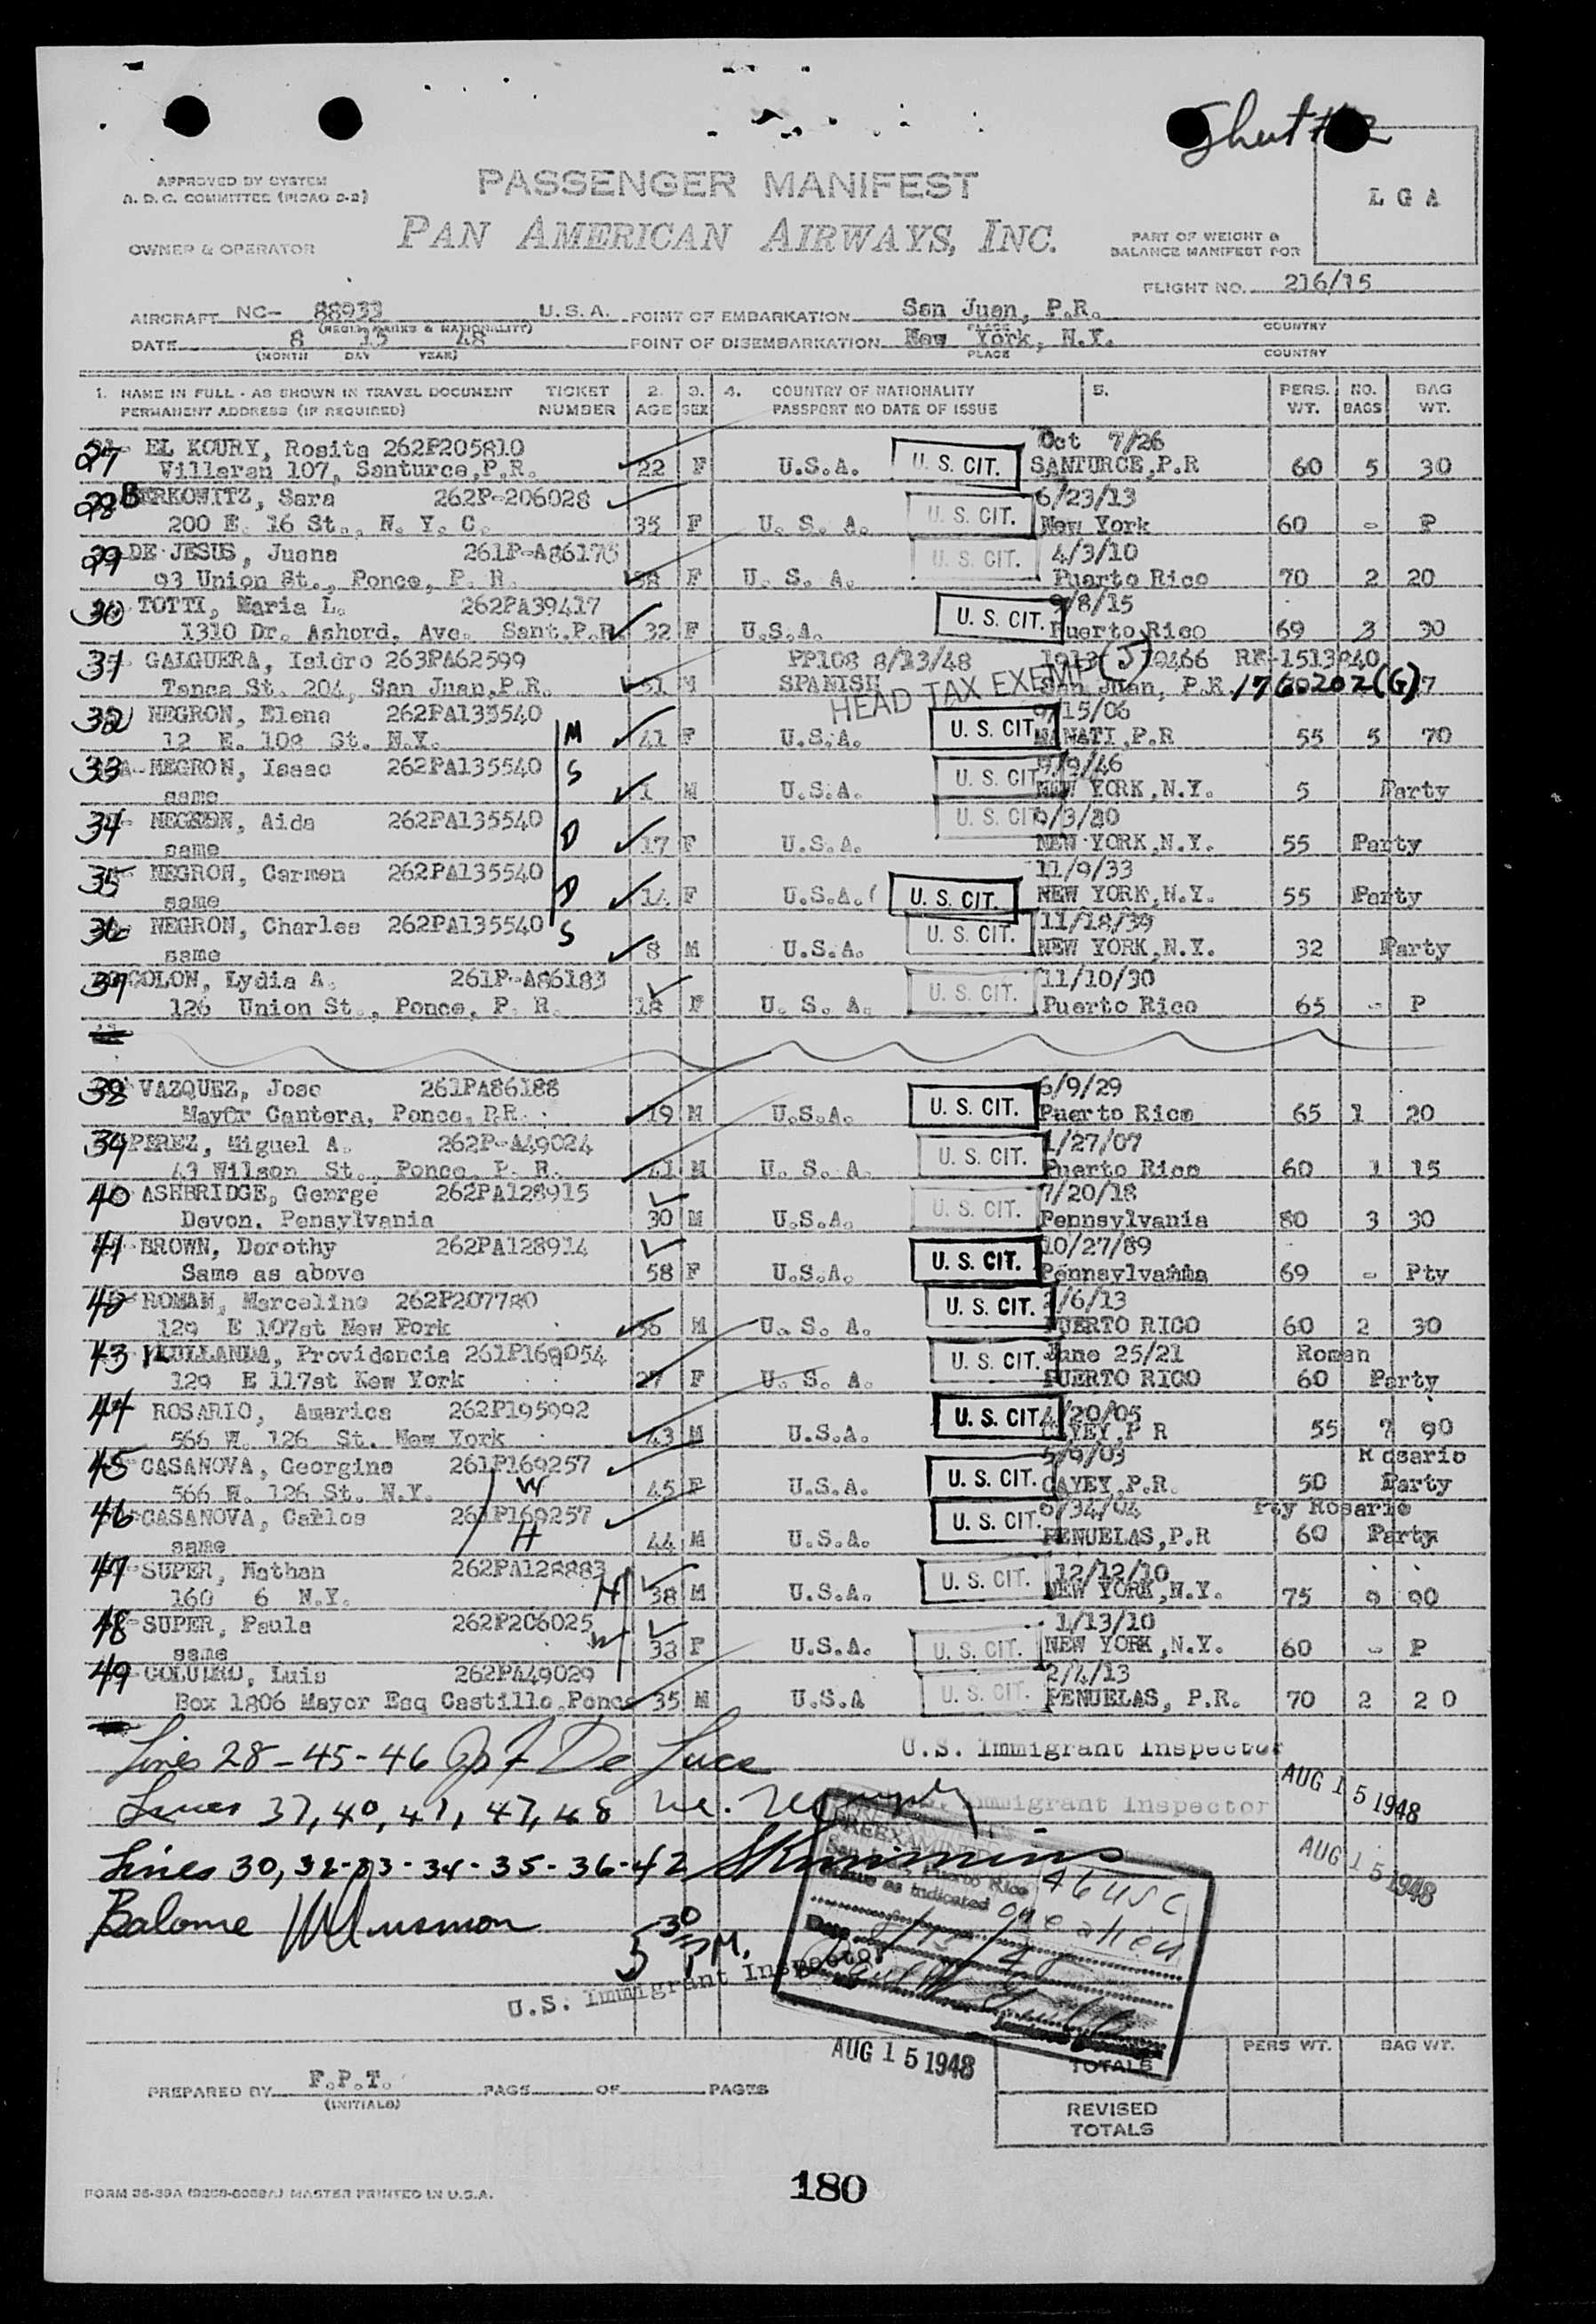 Sheet # 2
APPROVED BY SYSTEM
A. D. C. COMMITTEE (PICAO D-2)
PASSENGER MANIFEST
LGA
OWNER & OPERATOR
PAN AMERICAN AIRWAYS, INC.
PART OF WEIGHT &
BALANCE MANIFEST FOR
FLIGHT NO. 216/15
AIRCRAFT NC- 88933 U.S.A. POINT OF EMBARKATION San Juan, P.R.
(REGIS. MARKS & NATIONALITY) PLACE COUNTRY
DATE 8 15 48 POINT OF DISEMBARKATION New York, N.Y.
(MONTH DAY YEAR) PLACE COUNTRY
1. NAME IN FULL - AS SHOWN IN TRAVEL DOCUMENT TICKET 2. 3. 4. COUNTRY OF NATIONALITY 5. PERS. NO. BAG
PERMANENT ADDRESS (IF REQUIRED) NUMBER AGE SEX PASSPORT NO DATE OF ISSUE WT. BAGS WT.
27 EL KOURY, Rosita 262P205810 Oct 7/26
Villaran 107, Santurce, P.R. 22 F U.S.A. U. S. CIT. SANTURCE, P.R 60 5 30
28 BERKOWITZ, Sara 262P-206028 6/23/13
200 E. 16 St., N. Y. C. 35 F U. S. A. U. S. CIT. New York 60 - P
29 DE JESUS, Juana 261P-A86175 4/3/10
93 Union St., Ponce, P. R. 38 F U. S. A. U. S. CIT. Puerto Rico 70 2 20
30 TOTTI, Maria L. 262PA39417 9/8/15
1310 Dr. Ashord, Ave. Sant.P.R. 32 F U.S.A. U. S. CIT. Puerto Rico 69 3 30
31 GALGUERA, Isidro 263PA62599 PP108 8/13/48 (J) 0466 RE-1513940
Tanca St. 204, San Juan,P.R. M SPANISH HEAD TAX EXEMPT San Juan, P.R. 1760202(G) 7
32 NEGRON, Elena 262PA135540 M 9/15/06
12 E. 109 St. N.Y. 41 F U.S.A. U. S. CIT. MANATI, P.R 55 5 70
33 NEGRON, Isaac 262PA135540 S 9/9/46
same 1 M U.S.A. U. S. CIT. NEW YORK, N.Y. 5 Party
34 NEGRON, Aida 262PA135540 D /3/30
same 17 F U.S.A. U. S. CIT. NEW YORK, N.Y. 55 Party
35 NEGRON, Carmen 262PA135540 D 11/9/33
same 14 F U.S.A. U. S. CIT. NEW YORK, N.Y. 55 Party
36 NEGRON, Charles 262PA135540 S 11/18/39
same 8 M U.S.A. U. S. CIT. NEW YORK, N.Y. 32 Party
37 COLON, Lydia A. 261P-A86183 11/10/30
126 Union St., Ponce, P. R. 18 F U. S. A. U. S. CIT. Puerto Rico 65 - P
38 VAZQUEZ, Jose 261PA86188 6/9/29
Mayor Cantera, Ponce, P.R. 19 M U.S.A. U. S. CIT. Puerto Rico 65 1 20
39 PEREZ, Miguel A. 262P-A49024 1/27/07
43 Wilson St., Ponce, P. R. 41 M U. S. A. U. S. CIT. Puerto Rico 60 1 15
40 ASHBRIDGE, George 262PA128915 7/20/18
Devon, Pensylvania 30 M U.S.A. U. S. CIT. Pennsylvania 80 3 30
41 BROWN, Dorothy 262PA128914 10/27/89
Same as above 58 F U.S.A. U. S. CIT. Pennsylvania 69 - Pty
42 ROMAN, Marcelino 262P207780 /6/13
129 E 107st New York M U. S. A. U. S. CIT. PUERTO RICO 60 2 30
43 LLULLANDA, Providencia 261P169054 June 25/21 Roman
129 E 117st New York 27 F U. S. A. U. S. CIT. PUERTO RICO 60 Party
44 ROSARIO, America 262P195992 4/20/05
566 W. 126 St. New York 43 M U.S.A. U. S. CIT. CAYEY, P R 55 7 90
45 CASANOVA, Georgina 261P169257 5/9/03 Rosario
566 W. 126 St. N.Y. W 45 F U.S.A. U. S. CIT. CAYEY, P.R. 50 Party
46 CASANOVA, Carlos 261P169257 /34/04 Pty Rosario
same H 44 M U.S.A. U. S. CIT. PENUELAS, P.R 60 Party
47 SUPER, Nathan 262PA128883 12/12/10
160 6 N.Y. H 38 M U.S.A. U. S. CIT. NEW YORK, N.Y. 75 9 90
48 SUPER, Paula 262P206025 1/13/10
same W 38 F U.S.A. U. S. CIT. NEW YORK, N.Y. 60 - P
49 Luis 262PA49029 2/4/13
Box 1806 Mayor Esq Castillo, Ponce 35 M U.S.A U. S. CIT. PENUELAS, P.R. 70 2 2 0
Lines 28-45-46 De Luca U.S. Immigrant Inspector
AUG 15 1948
Lines 37, 40, 41, 47, 48 Immigrant Inspector
Lines 30, 32-33-34-35-36-42
AUG 15 1948
PREEXAMINED
San Juan, Puerto Rico
as indicated
46 USC
one alien
Date 8/15/48
Balance
5 30 P.M.
U.S. Immigrant Inspector
AUG 15 1948
PERS WT. BAG WT.
TOTALS
PREPARED BY F.P.T. PAGE OF PAGES
(INITIALS)
REVISED
TOTALS
180
FORM 36-39A MASTER PRINTED IN U.S.A.